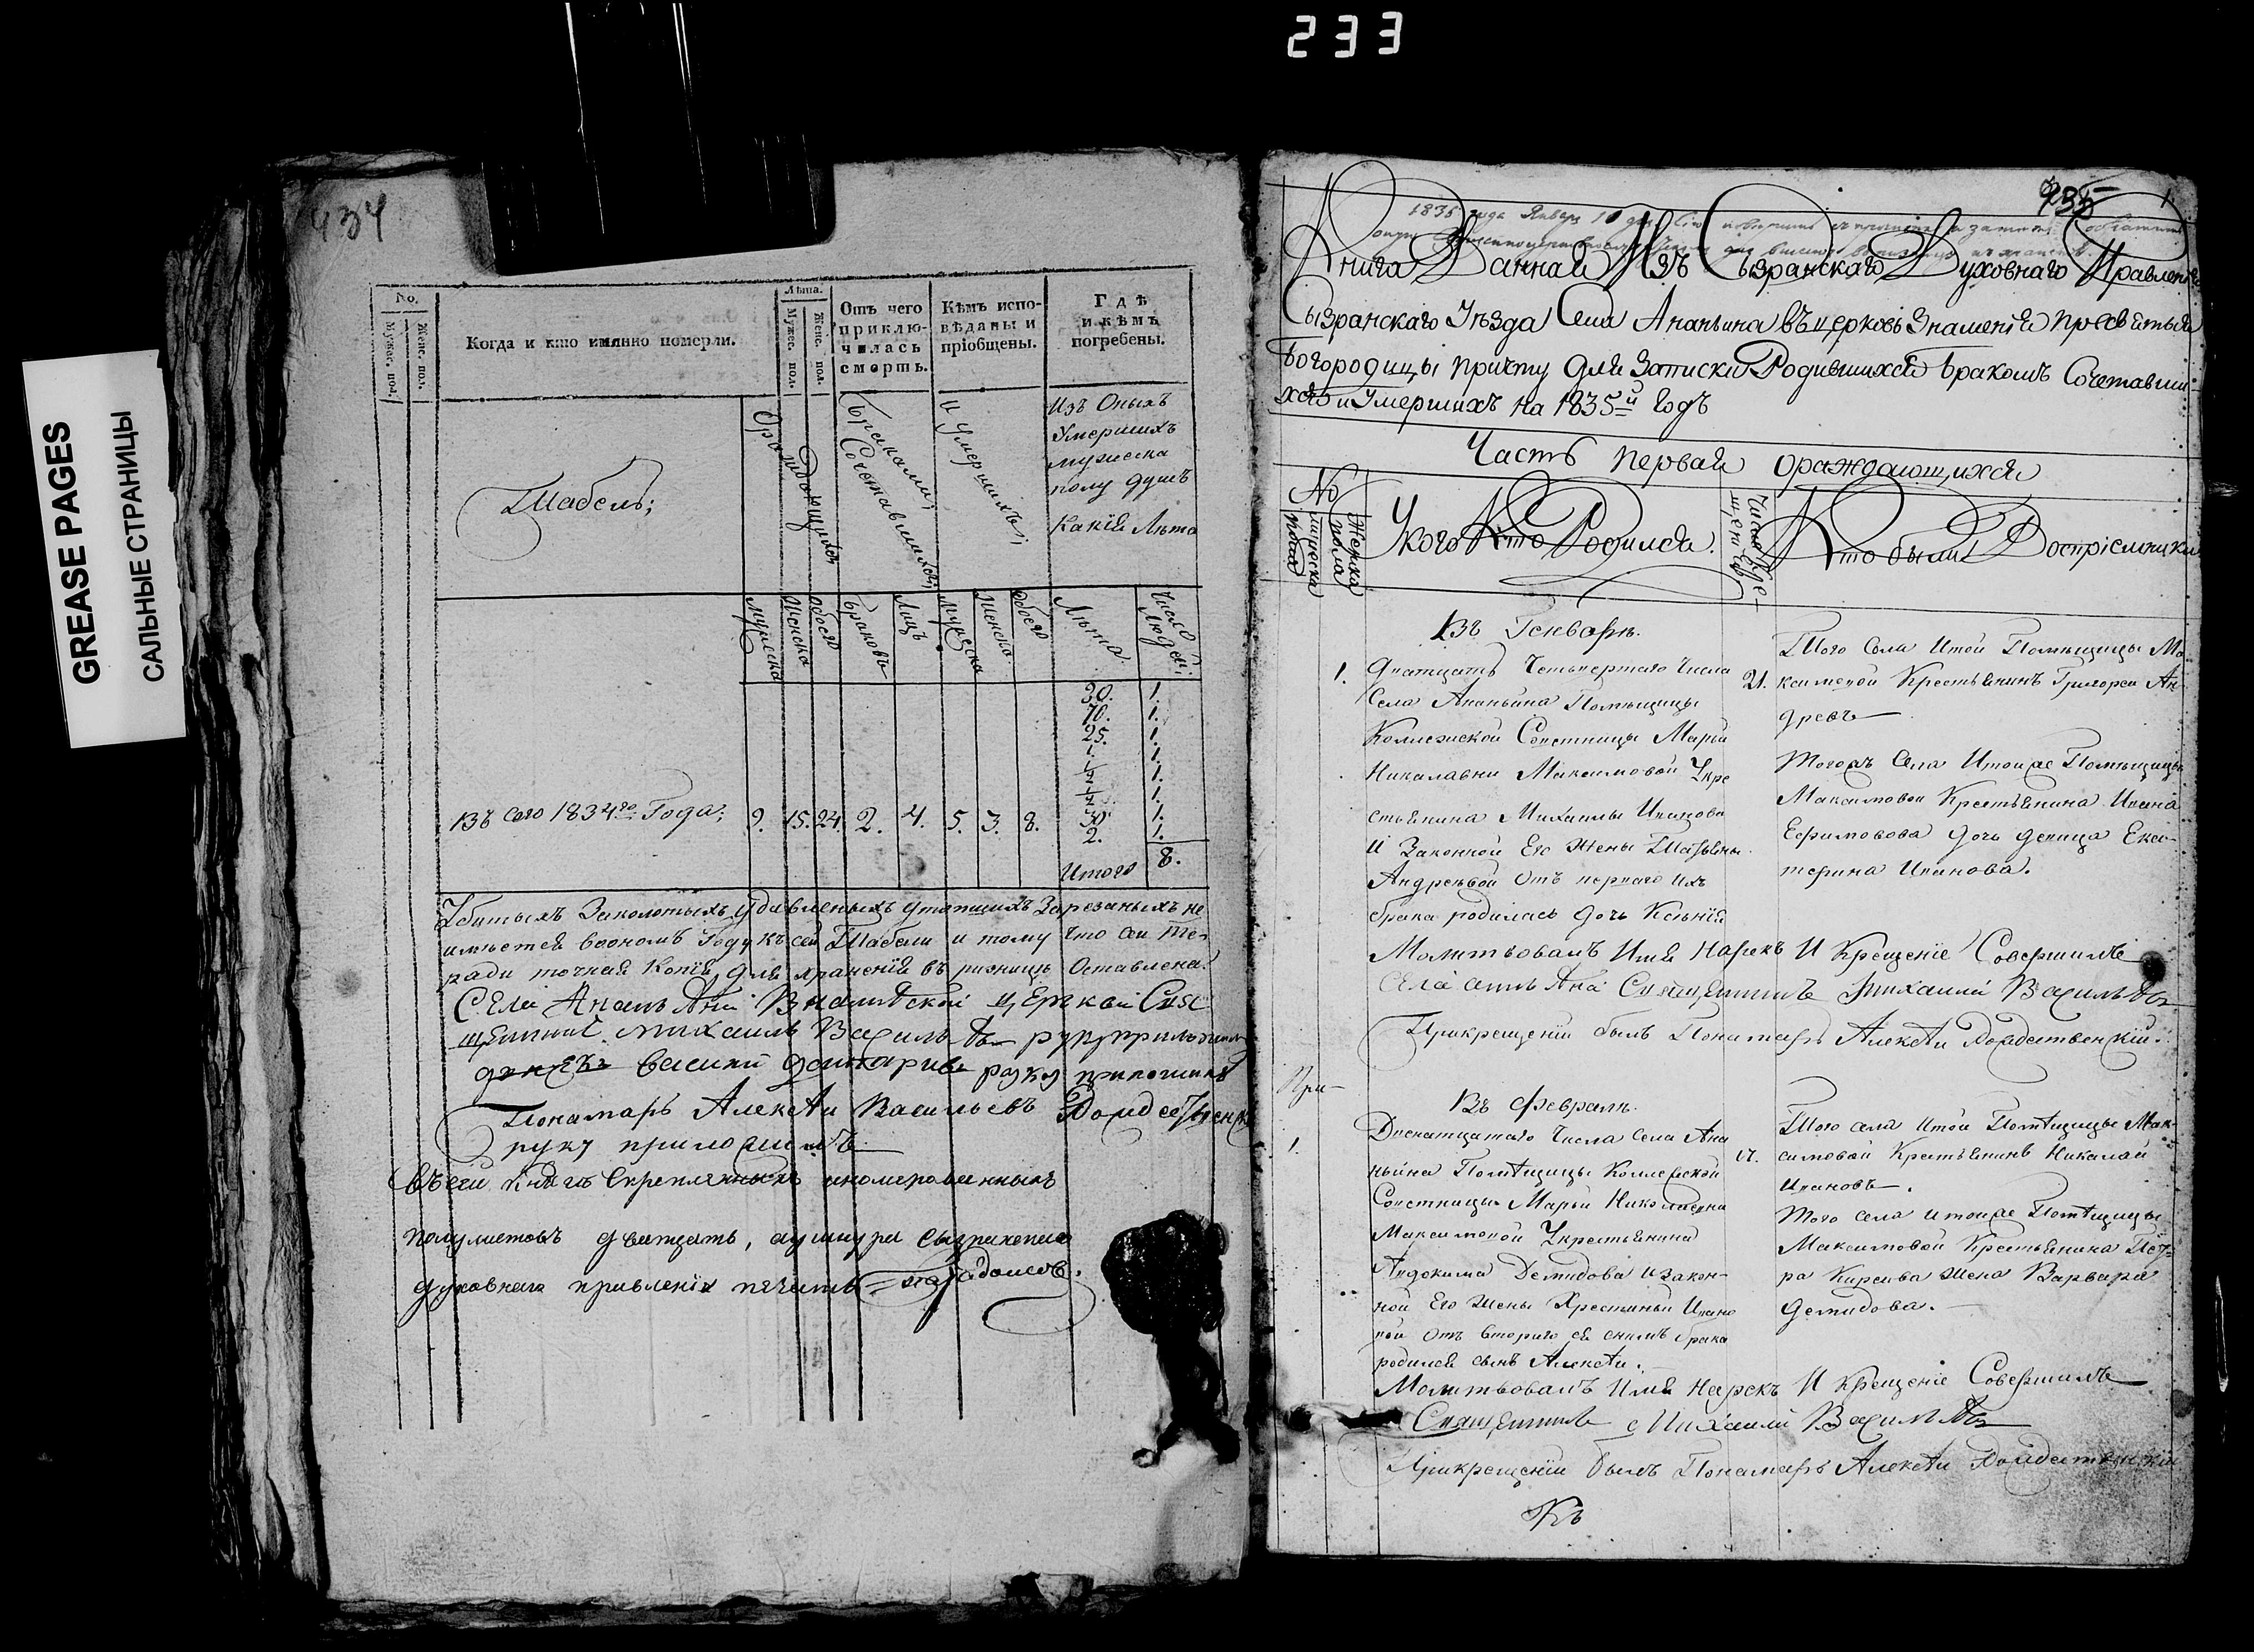 233
GREASE PAGES
САЛЬНЫЕ СТРАНИЦЫ
434
No.
Мужес. пол.
Женс. пол.
Когда и кто имянно померли.
Лѣта.
Мужес. пол.
Женс. пол.
Отъ чего приклю-
чилась смерть.
Кѣмъ испо-
вѣданы и
пріобщены.
Гдѣ
и кѣмъ
погребены.
Табель;
О раждающихся
Бракомъ Сочетавшихся;
И Умершихъ;
Изъ Оныхъ
Умершихъ
мужеска
полу душъ
Какія Лѣта
Мужеска
Женска
Обоего
Браковъ
Лицъ
Мужеска
Женска.
Обоего
Лѣта
Число Людей
30. 1.
70. 1.
25. 1.
1. 1.
1/2 1.
1/2 1.
30. 1.
2. 1.
Въ Сего 1834го Года; 9. 15. 24. 2. 4. 5. 3. 8.
Итого 8.
Убитыхъ Заколотыхъ удавленыхъ утопшихъ Зарезаныхъ не
имѣется воономъ Году къ сей Табели и тому что сей те-
ради точная Копія для храненія въ ризнице Оставлена.
Села Ананьина Знаменской Церкви Свя
щенникъ Михаилъ Васильевъ руку приложилъ
Василий руку приложилъ
Понамарь Алексѣй Васильевъ Рождественск
руку приложилъ
Въсей Книгѣ Скрепленныхъ иномерованныхъ
полулистовъ дватцать, аушнура Сызранскаго
духовнаго правленія печать
435
1.
1835 года Января
Книга Данная Изъ Сызранскаго Духовнаго Правленія
Сызранскаго Уѣзда Села Ананьина въ церковь Знаменія Пресвятыя
Богородицы причту для Записки Родившихся бракомъ Сочетавши
хся и Умершихъ на 1835й Годъ
Часть первая Ораждающихся
No
мужеска пола
Женска пола
Укого Кто Родился.
Кто были Воспріемники
Въ Генваря.
1. Дватцать Четьвертаго Числа
Села Ананьина Помѣщицы
Колежской Советницы Марьи
Николавны Максимовой Укре
стьянина Михаилы Иванова
И Законной Его Жены Татьяны
Андреѣвой Отъ перваго ихъ
брака родилась Дочь Ксенія
21.
Того Села Итой Помѣщицы Ма
ксимовой Крестьянинъ Григореи Ан
древъ
Тогожъ Села Итойже Помѣщицы
Максимовой Крестьянина Ивана
Ефимовова дочь девица Ека-
терина Иванова.
Молитвовалъ Имя Нарекъ И Крещеніе Совершилъ
Села Ананьина Священникъ Михаилъ Васильевъ
Прикрещеніи былъ Понамарь Алексѣй Рождественскій.
При-
Въ Февраля.
1. Двенатцатаго Числа Села Ана
ньина Помѣщицы Коллежской
Советницы Марьи Николаевны
Максимовой Укрестьянина
Авдокима Демидова изакон-
ной Его Жены Хрестиньи Ивано
вой Отъ Втораго ея снимъ брака
родился сынъ Алексѣй.
Того села Итой Помѣщицы Мак-
симовой Крестьянинъ Николай
Ивановъ.
Того села итойже Помѣщицы
Максимовой Крестьянина Пет-
ра Киреива Жена Варвара
Демидова.
Молитвовалъ Имя Нарекъ И Крещеніе Совершилъ
Священникъ Михаилъ Васильевъ
Прикрещеніи былъ Понамарь Алексѣй Рождественскій
Къ